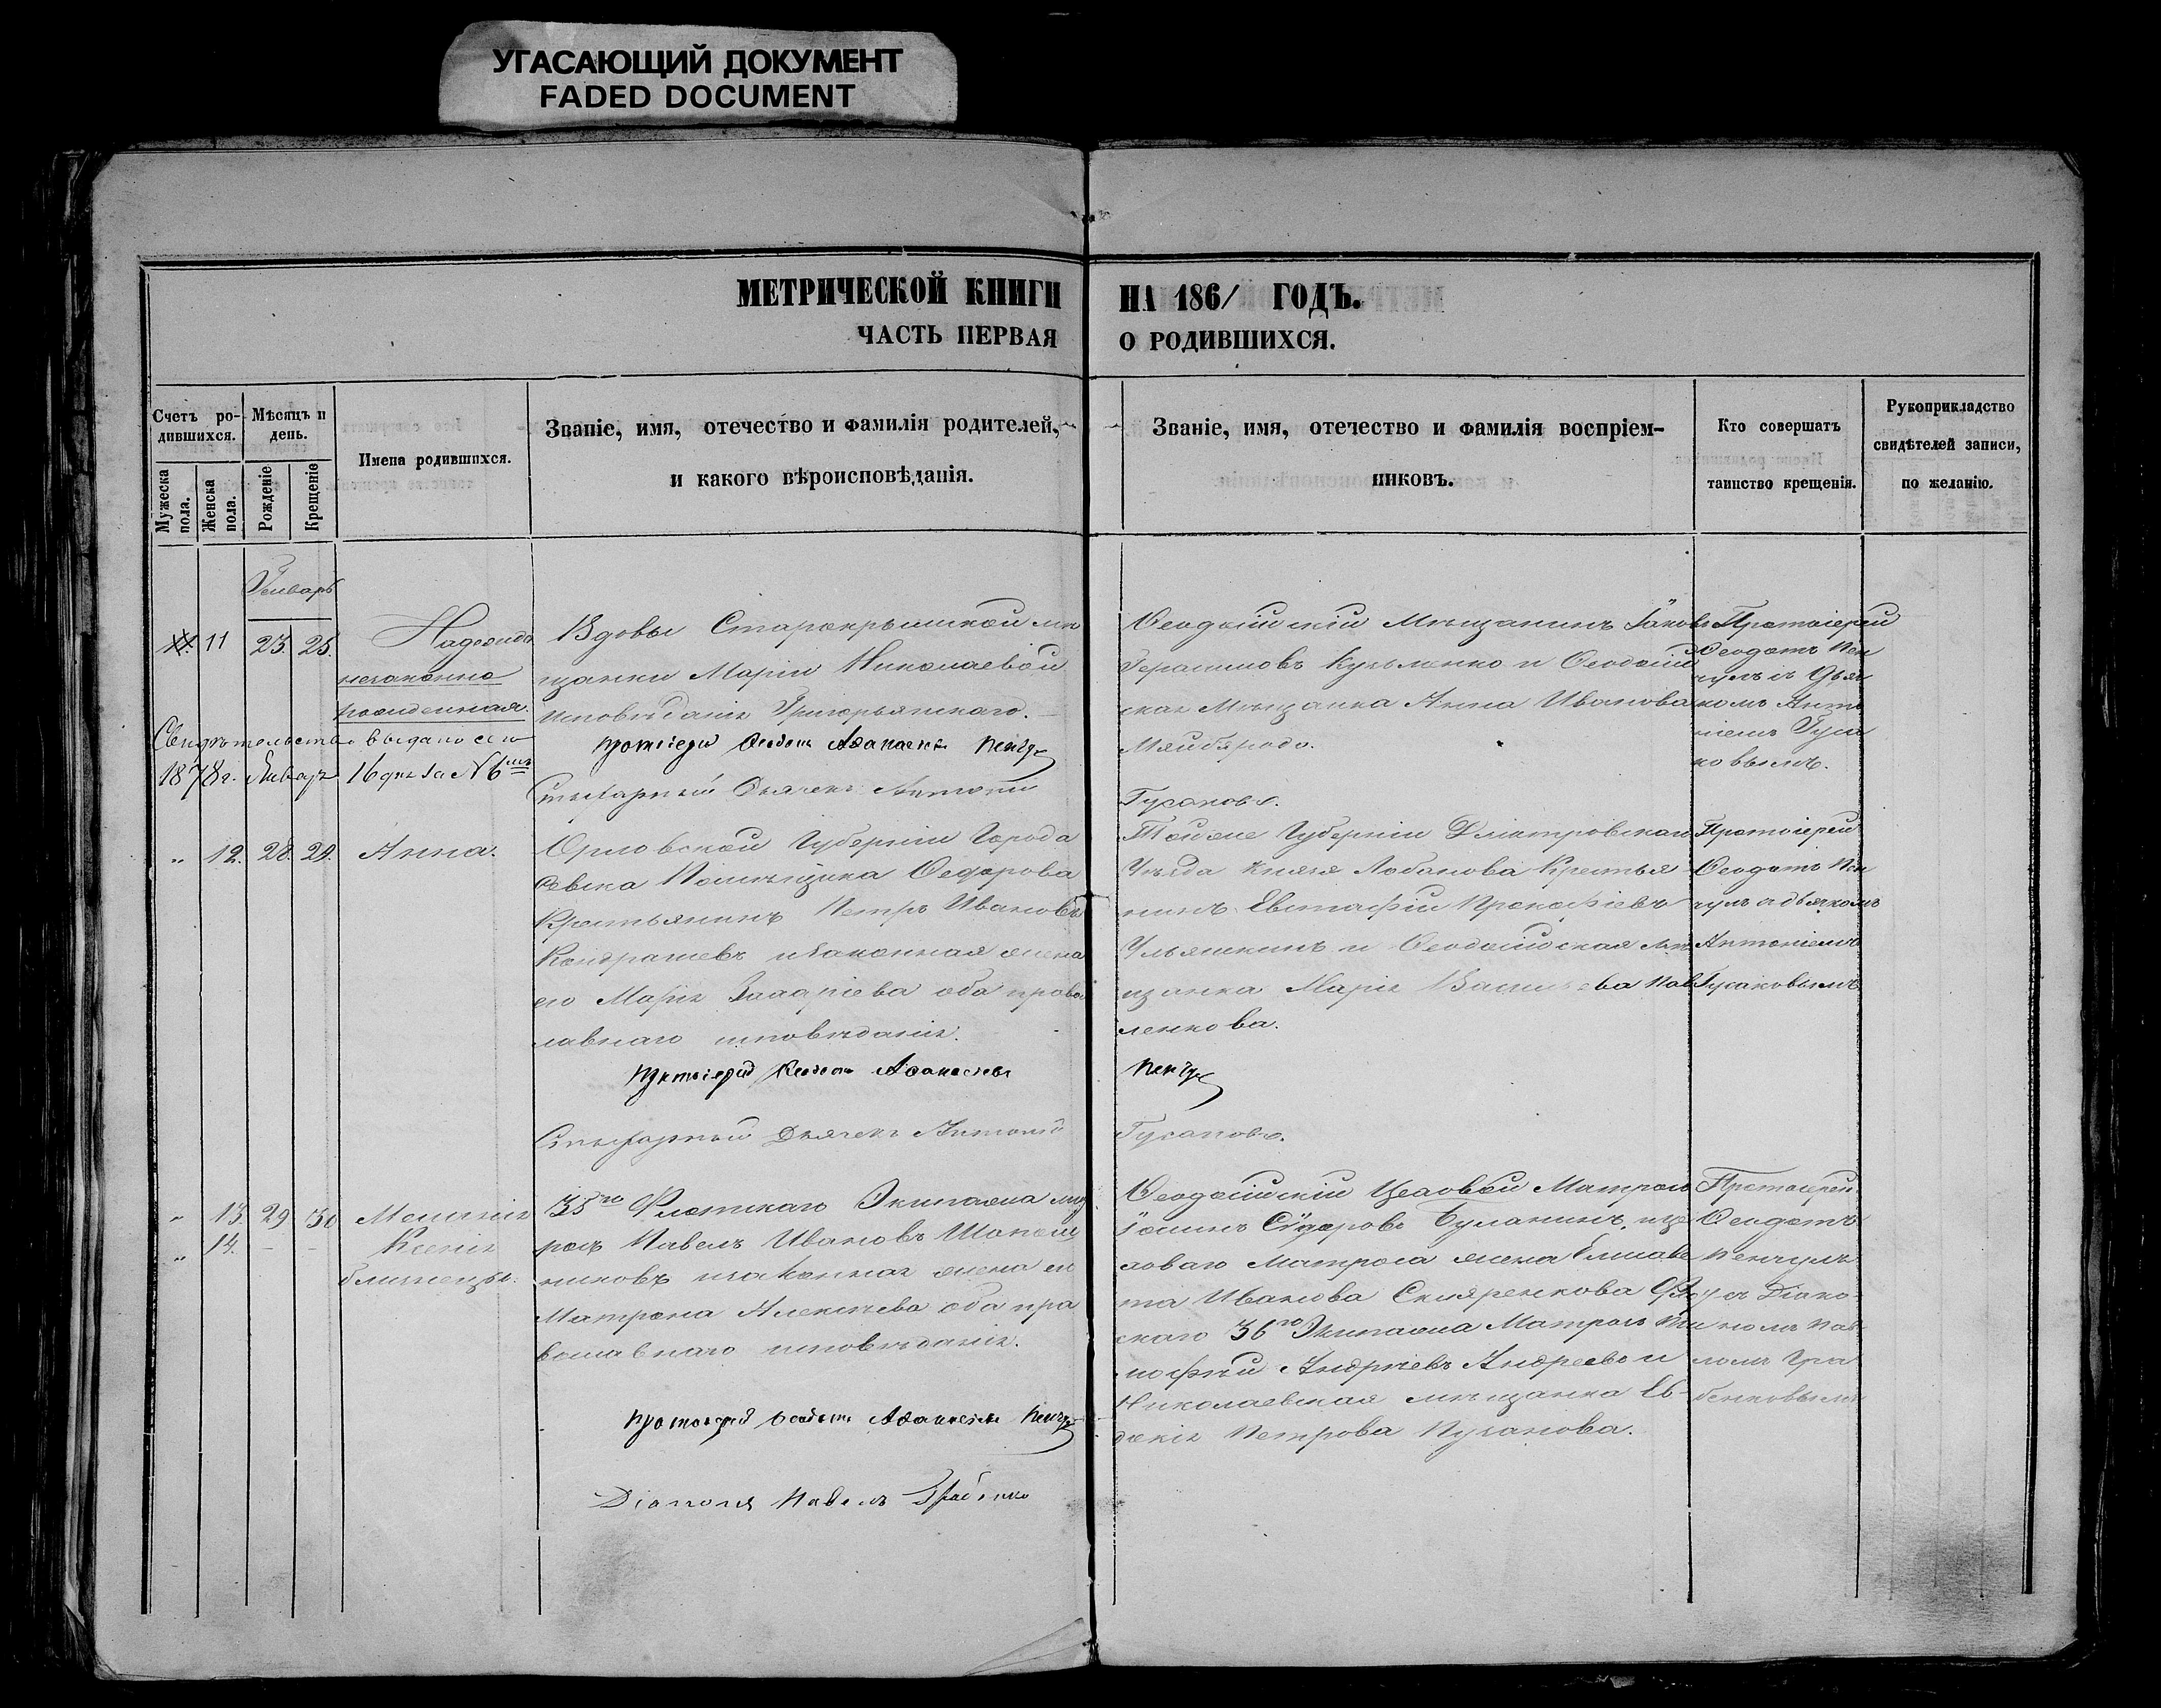 УГАСАЮЩИЙ ДОКУМЕНТ
FADED DOCUMENT
МЕТРИЧЕСКОЙ КНИГИ НА 1861 ГОДЪ.
ЧАСТЬ ПЕРВАЯ О РОДИВШИХСЯ.
Счетъ родившихся.
Мужеска пола.
Женска пола.
Мѣсяцъ и день.
Рожденіе
Крещеніе
Имена родившихся.
Званіе, имя, отечество и фамилія родителей,
и какого вѣроисповѣданія.
Званіе, имя, отечество и фамилія воспріем-
никовъ.
Кто совершалъ
таинство крещенія.
Рукоприкладство
свидѣтелей записи,
по желанію.
Генварь
11 23. 25.
Надежда
незаконно
рожденная.
Свидѣтельство выдано
1878 г. Января 16 дня за № 6
Вдовы Старокрымской мѣ
щанки Маріи Николаевой
исповѣданія Григорьянскаго.
Протоіерей Ѳеодотъ Аѳанасьевъ
Дьячекъ Антоній
Ѳеодосійскій Мѣщанинъ Іаковъ
Герасимовъ Кузьменко и Ѳеодосій
ская Мѣщанка Анна Иванова
Гусаковъ.
Протоіерей
Ѳеодотъ Пен
чулъ съ Дьяч
комъ Анто
ніемъ Гуса
ковымъ.
12. 28. 29. Анна.
Орловской Губерніи Города
Сѣвска Помѣщика Ѳедорова
Крестьянинъ Петръ Ивановъ
Кондрашевъ и законная жена
его Марія оба право
славнаго исповѣданія.
Протоіерей Ѳеодотъ Аѳанасьевъ
Дьячекъ Антоній
Тойже Губерніи Дмитровскаго
Уѣзда Князя Лобанова Крестья
нинъ Евстафій Прокофіевъ
Ульяшкинъ и Ѳеодосійская мѣ
щанка Марія Васильева Пав
ленкова.
Пенчулъ
Гусаковъ.
Протоіерей
Ѳеодотъ Пен
чулъ съ дьячкомъ
Антоніемъ
Гусаковымъ
13. 29 30 Меланія
14. - - Ксенія
близнецы.
35го Флотскаго Экипажа мат
росъ Павелъ Ивановъ
никовъ и законная жена его
Матрона Алексѣева оба пра
вославнаго исповѣданія.
Протоіерей Ѳеодотъ Аѳанасьевъ Пенчулъ
Діаконъ Павелъ Грабенко
Ѳеодосійскій Цеховой Матросъ
Сидоровъ Буланинъ, цѣ
ховаго Матроса жена Елисаве
та Иванова Скляренкова Фло
скаго 36го Экипажа Матросъ Ти
мофѣй Андреевъ Андреевъ и
Николаевская мѣщанка Ев-
докія Петрова Пузанова.
Протоіерей
Ѳеодотъ
Пенчулъ
съ Діако
номъ Пав
ломъ Гра
бенковымъ